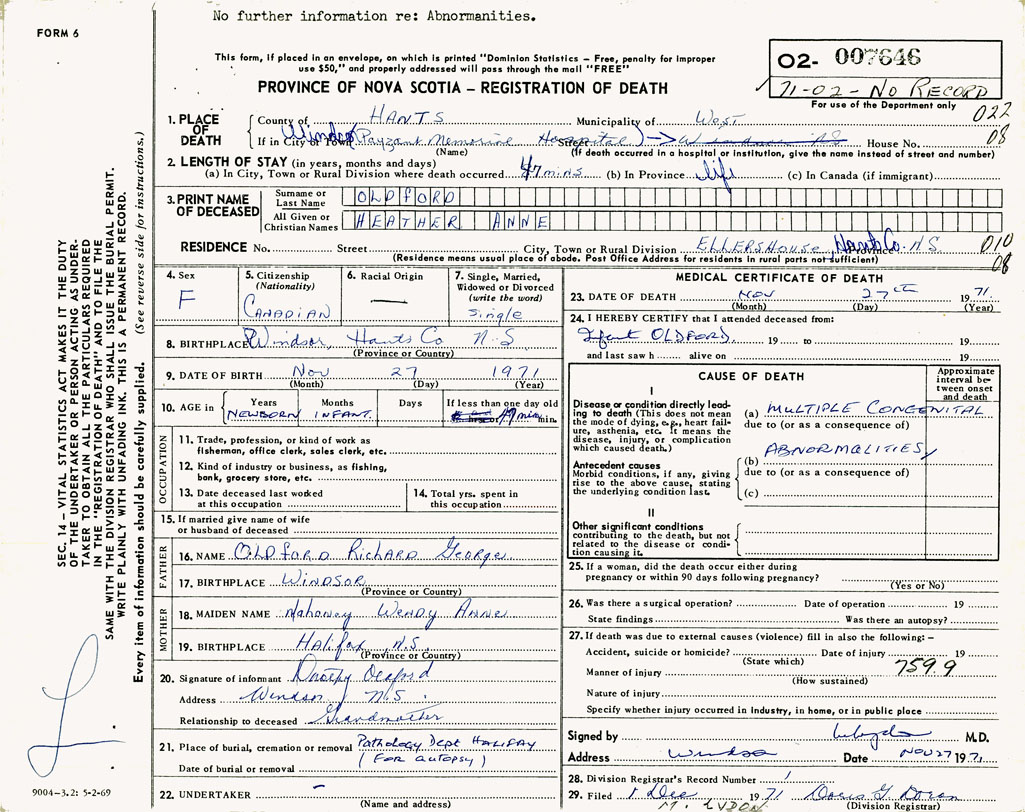 No further information re: Abnormanities.
FORM 6
This form, if placed in an envelope, on which is printed "Dominion Statistics – Free, penalty for improper
use $50," and properly addressed will pass through the mail "FREE"
O2- 007646
71-02-No RECORD
For use of the Department only
PROVINCE OF NOVA SCOTIA – REGISTRATION OF DEATH
022
08
1. PLACE OF DEATH
County of HANTS Municipality of West
If in City or Town Windsor Payzant Memorial Hospital Street House No.
(Name) (If death occurred in a hospital or institution, give the name instead of street and number)
2. LENGTH OF STAY (in years, months and days)
(a) In City, Town or Rural Division where death occurred 47 mins (b) In Province life (c) In Canada (if immigrant)
3. PRINT NAME OF DECEASED
Surname or Last Name OLDFORD
All Given or Christian Names HEATHER ANNE
RESIDENCE No. Street City, Town or Rural Division ELLERSHOUSE, Hants Co. N.S
(Residence means usual place of abode. Post Office Address for residents in rural parts not sufficient)
010
08
4. Sex
F
5. Citizenship
(Nationality)
CANADIAN
6. Racial Origin
—
7. Single, Married,
Widowed or Divorced
(write the word)
Single
8. BIRTHPLACE Windsor, Hants Co N.S
(Province or Country)
9. DATE OF BIRTH Nov 27 1971
(Month) (Day) (Year)
10. AGE in
Years Months Days If less than one day old
NEWBORN INFANT. 47 min. min.
OCCUPATION
11. Trade, profession, or kind of work as
fisherman, office clerk, sales clerk, etc.
12. Kind of industry or business, as fishing,
bank, grocery store, etc.
13. Date deceased last worked
at this occupation
14. Total yrs. spent in
this occupation
15. If married give name of wife
or husband of deceased
FATHER
16. NAME OLDFORD Richard George
17. BIRTHPLACE WINDSOR
(Province or Country)
MOTHER
18. MAIDEN NAME Mahoney Wendy Anne
19. BIRTHPLACE Halifax N.S.
(Province or Country)
20. Signature of informant
Address Windsor N.S.
Relationship to deceased Grandmother
21. Place of burial, cremation or removal Pathology Dept HALIFAX
(FOR AUTOPSY)
Date of burial or removal
22. UNDERTAKER –
(Name and address)
MEDICAL CERTIFICATE OF DEATH
23. DATE OF DEATH Nov 27th 1971.
(Month) (Day) (Year)
24. I HEREBY CERTIFY that I attended deceased from:
Infant OLDFORD. 19 to 19
and last saw h alive on 19
CAUSE OF DEATH
Approximate
interval be-
tween onset
and death
I
Disease or condition directly lead-
ing to death (This does not mean
the mode of dying, e.g., heart fail-
ure, asthenia, etc. It means the
disease, injury, or complication
which caused death.)
(a) MULTIPLE CONGENITAL
due to (or as a consequence of)
ABNORMALITIES
Antecedent causes
Morbid conditions, if any, giving
rise to the above cause, stating
the underlying condition last.
(b)
due to (or as a consequence of)
(c)
II
Other significant conditions
contributing to the death, but not
related to the disease or condi-
tion causing it.
25. If a woman, did the death occur either during
pregnancy or within 90 days following pregnancy?
(Yes or No)
26. Was there a surgical operation? Date of operation 19
State findings Was there an autopsy?
27. If death was due to external causes (violence) fill in also the following: –
Accident, suicide or homicide? Date of injury 19
(State which)
759.9
Manner of injury
(How sustained)
Nature of injury
Specify whether injury occurred in industry, in home, or in public place
Signed by M.D.
Address Windsor Date NOV 27 1971.
28. Division Registrar's Record Number 1
29. Filed 1 Dec 1971 Doris G
(Division Registrar)
SEC. 14 – VITAL STATISTICS ACT MAKES IT THE DUTY
OF THE UNDERTAKER OR PERSON ACTING AS UNDER-
TAKER TO OBTAIN ALL THE PARTICULARS REQUIRED
IN THE "REGISTRATION OF DEATH" AND TO FILE THE
SAME WITH THE DIVISION REGISTRAR WHO SHALL ISSUE THE BURIAL PERMIT.
WRITE PLAINLY WITH UNFADING INK. THIS IS A PERMANENT RECORD.
Every item of information should be carefully supplied. (See reverse side for instructions.)
9004-3.2: 5-2-69